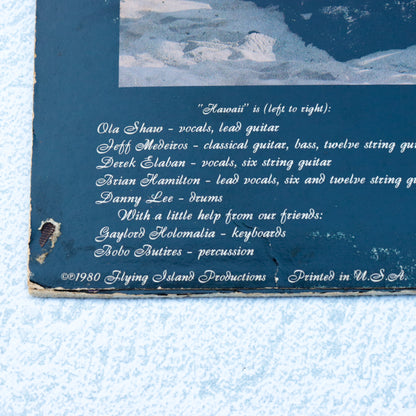 "Hawaii" is (left to right):
Ola Shaw - vocals, lead guitar
Jeff Medeiros - classical guitar, bass, twelve string
Derek Elaban - vocals, six string guitar
Brian Hamilton - lead vocals, six and twelve string
Danny Lee - drums
With a little help from our friends:
Gaylord Holomalia - keyboards
Bobo Butires - percussion
©℗1980 Flying Island Productions / Printed in U.S.A.